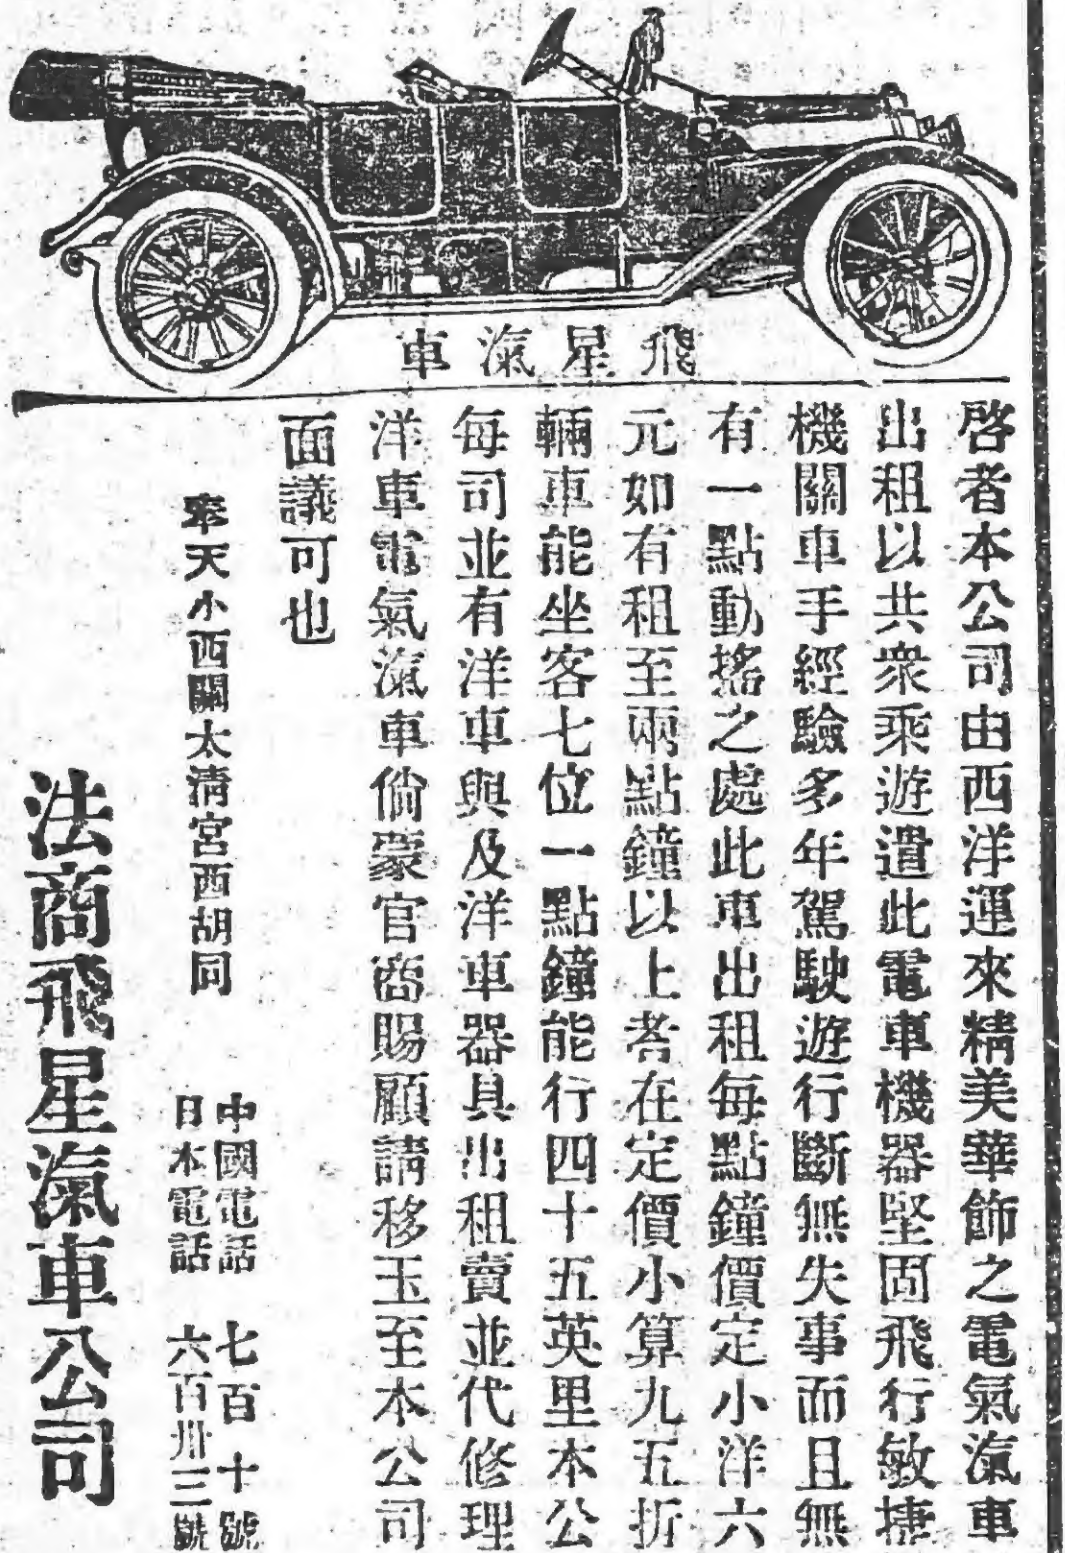 飛星滊車
啓者本公司由西洋運來精美華飾之電氣滊車
出租以共衆乘遊遣此電車機器堅固飛行敏捷
機關車手經驗多年駕駛遊行斷無失事而且無
有一點動搖之處此車出租每點鐘價定小洋六
元如有租至兩點鐘以上者在定價小算九五折
輛車能坐客七位一點鐘能行四十五英里本公
每司並有洋車與及洋車器具出租賣並代修理
洋車電氣滊車倘蒙官商賜顧請移玉至本公司
面議可也
奉天小西關太淸宮西胡同
中國電話 七百十號
日本電話 六百卅三號
法商飛星滊車公司